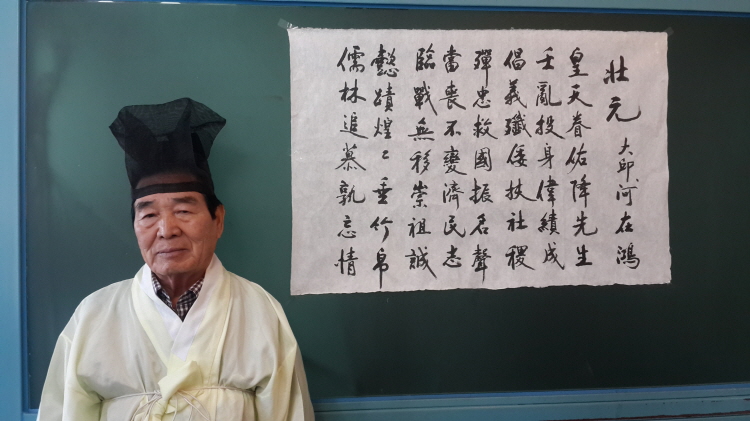 壯元 大邱 河在鴻
皇天眷佑降先生
壬亂投身偉績成
倡義殲倭扶社稷
彈忠救國振名聲
當喪不變濟民志
臨戰無移崇祖誠
懿蹟煌〻垂竹帛
儒林追慕孰忘情